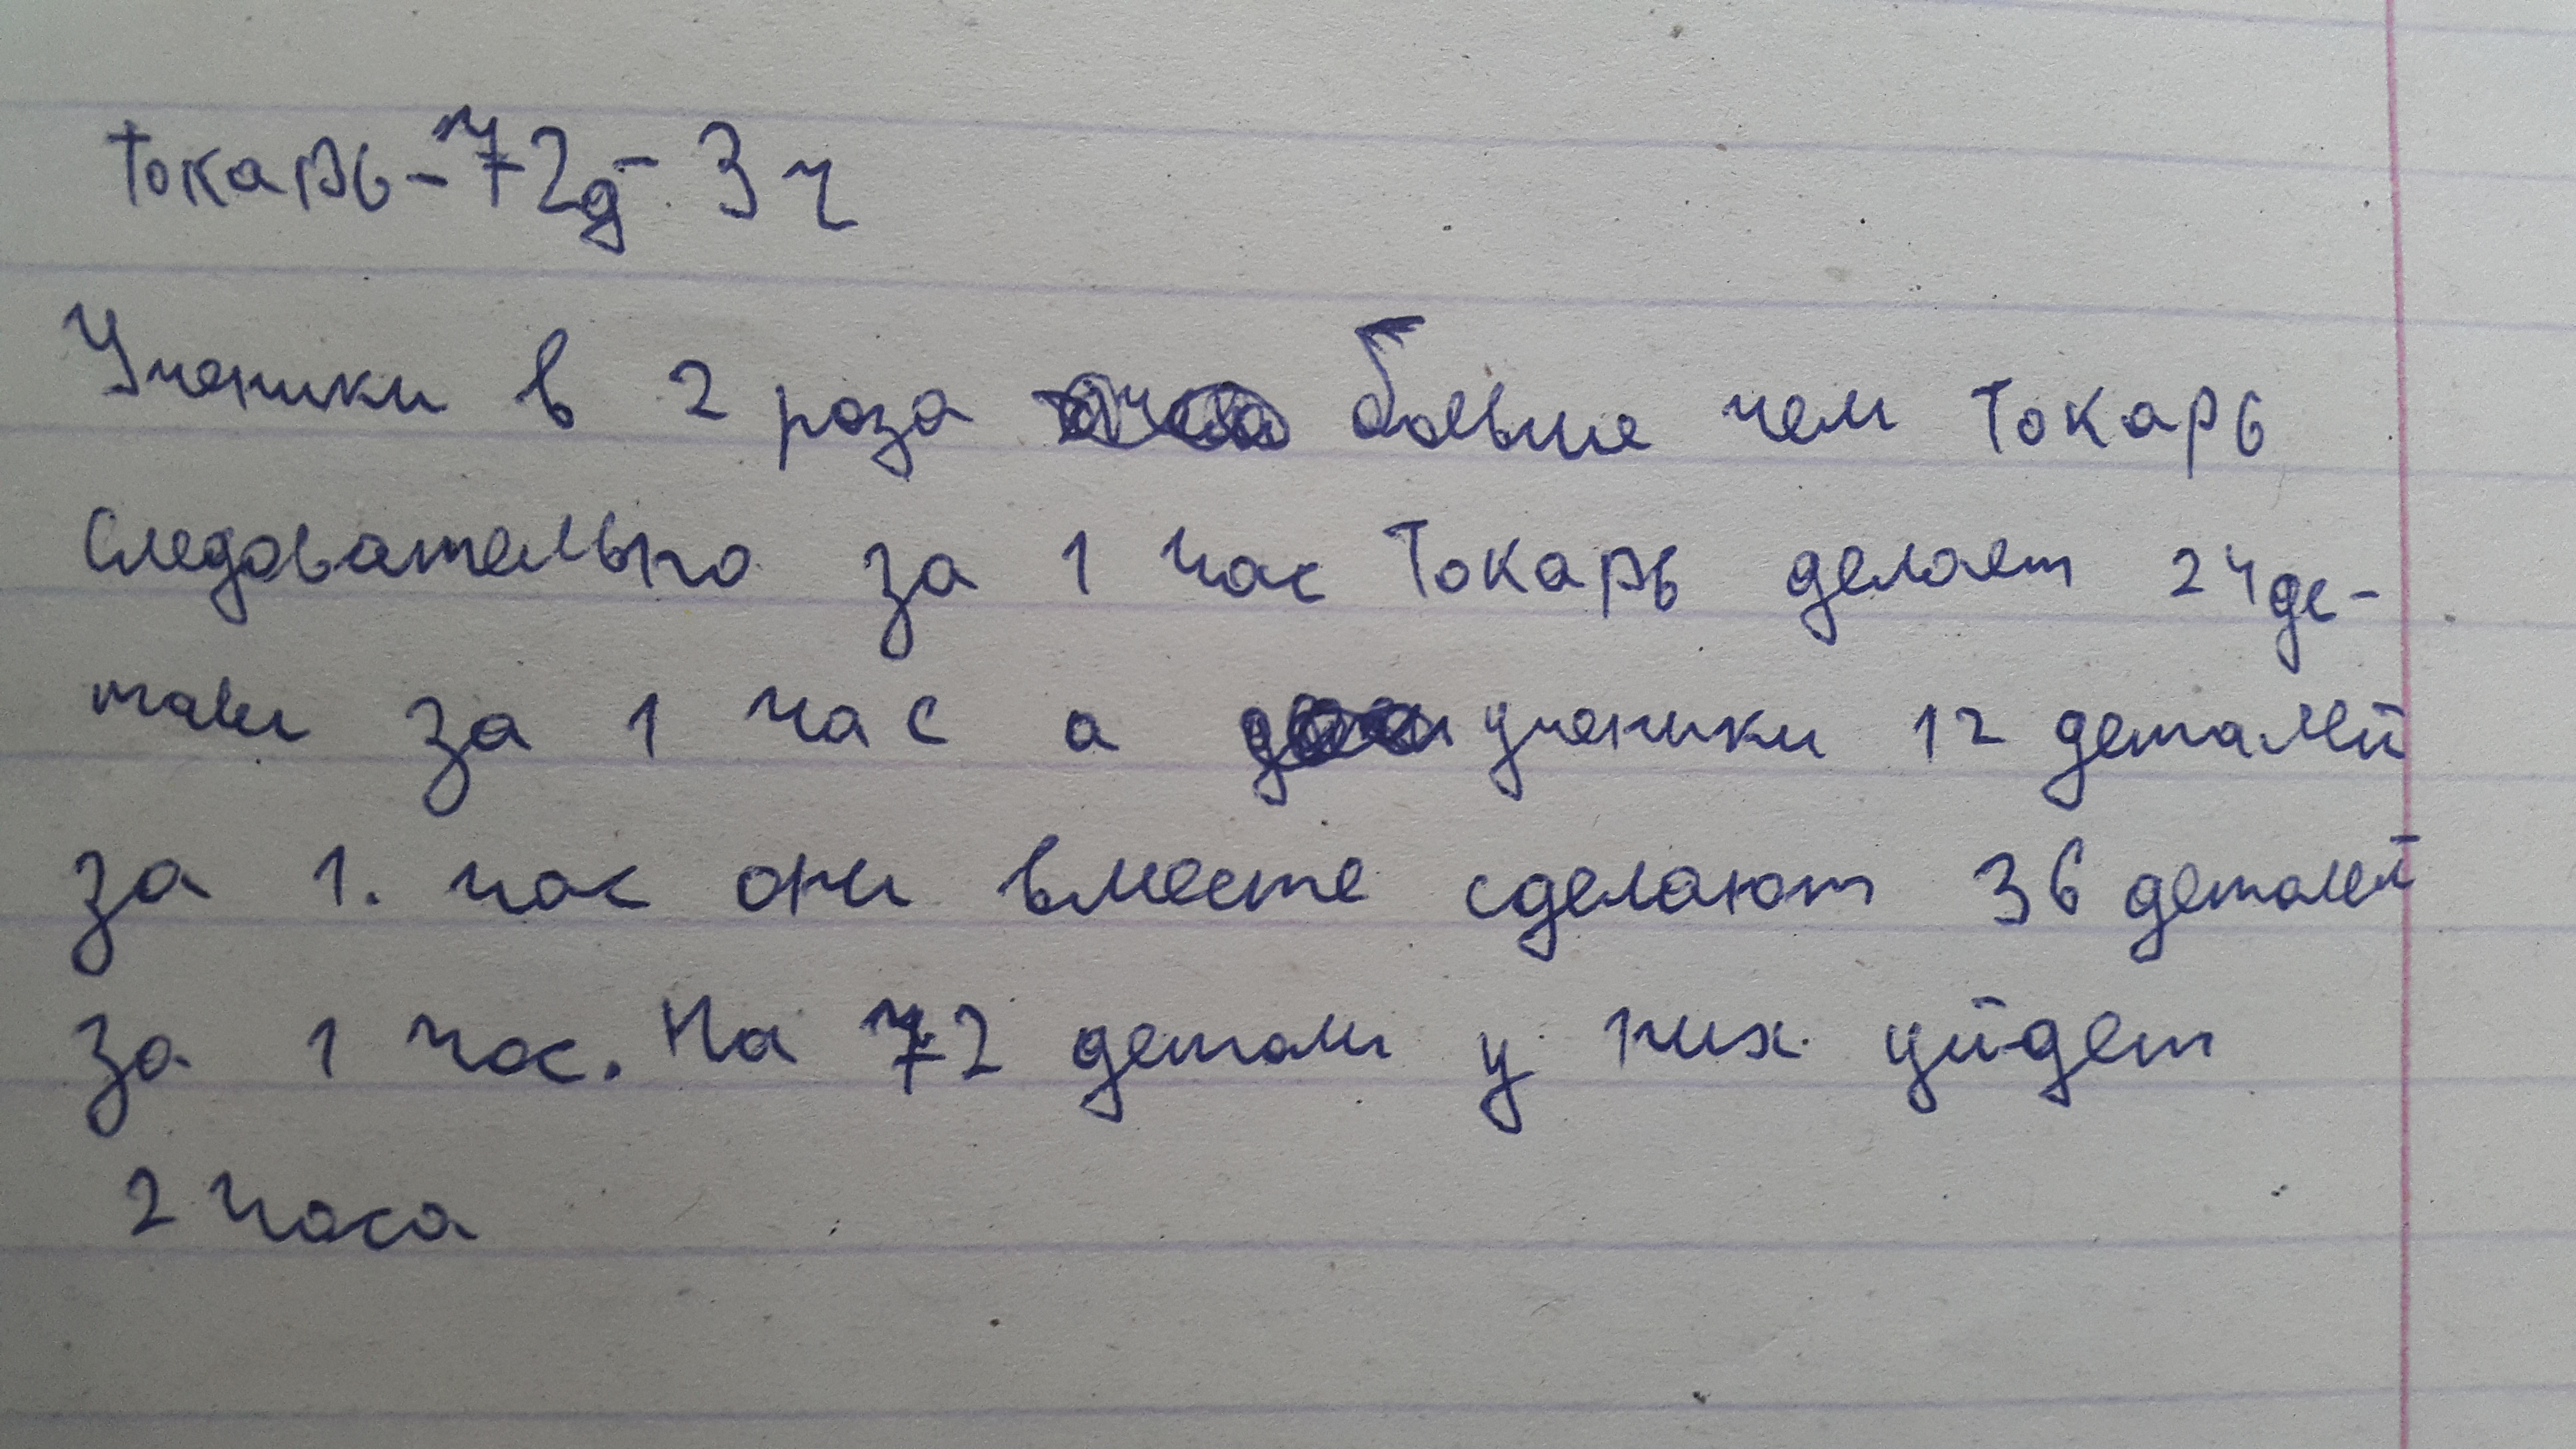 Токарь - 72д - 3ч
Ученики в 2 раза больше чем Токарь
Следовательно за 1 час Токарь делает 24 де-
тали за 1 час а ученики 12 деталей
за 1. час они вместе сделают 36 деталей
за 1 час. На 72 детали у них уйдет
2 часа